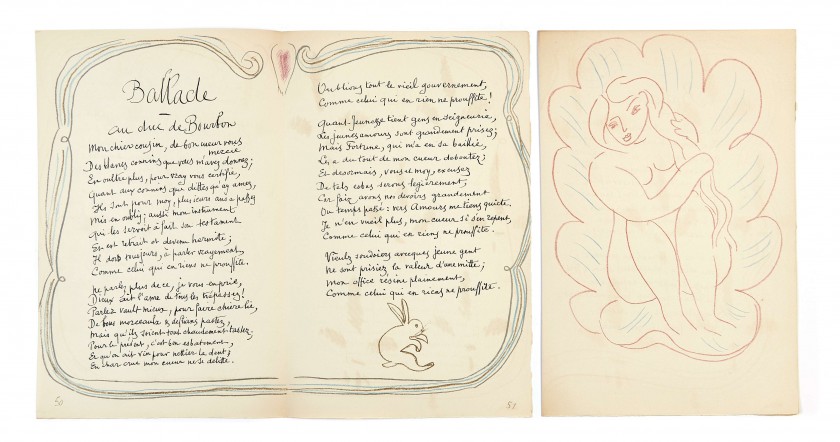 Ballade
au duc de Bourbon
Mon chier cousin, de bon cueur vous mercie
Des blancs connins que vous m'avez donnez;
En oultre plus, pour vray vous certifie,
Quant aux connins que dittes qu'ay amez,
Ilz sont pour moy, plusieurs ans a passez
Mis en oubly; aussi mon instrument
Qui les servoit à fait son testament
Et est retrait et devenu hermite;
Il dort tousjours, à parler vrayement,
Comme celui qui en riens ne prouffite.
Ne parlez plus de ce, je vous en prie,
Dieux ait l'ame de tous les trespassez!
Parler vault mieux, pour faire chiere lie,
De bons morceaulx & de frians pastez,
Mais qu'ilz soient tout chaudement tastez.
Pour le présent, c'est bon esbatement,
Et qu'on ait vin pour nettier la dent;
En char crue mon cueur ne se délitte.
50
Oublions tout le vieil gouvernement,
Comme celui qui en rien ne prouffite!
Quant Jeunesse tient gens en seigneurie,
Les jeunes amours sont grandement prisez;
Mais Fortune, qui m'a en sa baillie,
Les a du tout de mon cueur deboutez;
Et desormais, vous et moy, excusez
De tels esbas serons legierement;
Car faiz avons noz devoirs grandement
Ou temps passé: vers Amours me tiens quicte.
Je n'en vueil plus, mon cueur si s'en repent,
Comme celui qui en riens ne prouffite.
Vieulx soudoiers avecques jeune gent
Ne sont prisiez la valeur d'une mitte;
Mon office résine plainement,
Comme celui qui en riens ne prouffite.
51